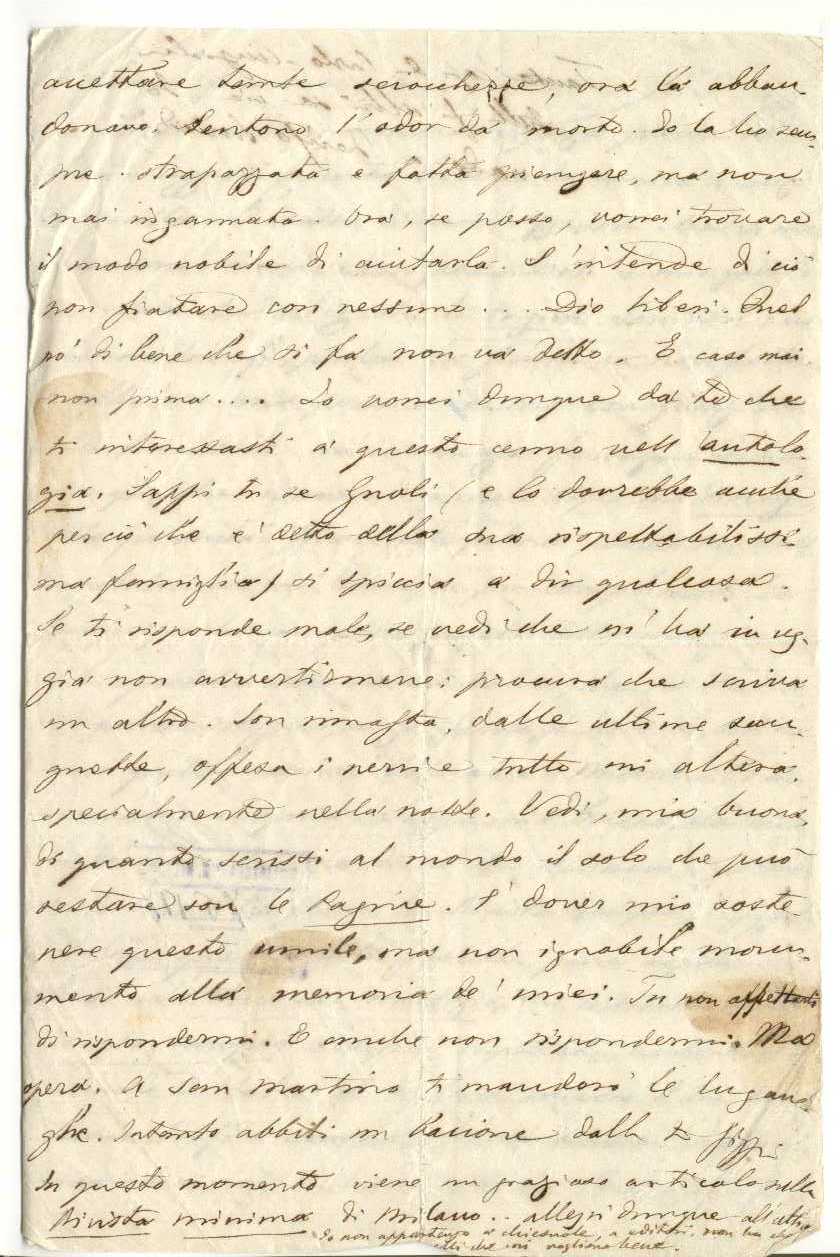 accettare tante sciocchezze, ora l'à abban-
donano. Sentono l'odor da morto. Io la ho sem-
pre strapazzata e fatta piangere, ma non
mai ingannata. Ora, se posso, vorrei trovare
il modo nobile di aiutarla. S'intende di ciò
non fiatare con nessuno... Dio liberi. Quel
pò di bene che si fa non va detto. E caso mai
non prima.... Io vorrei dunque da te che
ti interessasti a questo cenno nell'antolo-
gia. Sappi tu se Gnoli (e lo dovrebbe anche
per ciò che è detto della sua rispettabilissi-
ma famiglia) si spiccia a dir qualcosa.
Se ti risponde male, se vedi che m'ha in ug-
gia non avvertirmene: procura che scriva
un altro. Son rimasta, dalle ultime san-
guette, offesa i nervi e tutto mi altera,
specialmente nella notte. Vedi, mia buona,
di quanto scrissi al mondo il solo che può
restare son le Pagine. È dover mio soste-
nere questo umile, ma non ignobile monu-
mento alla memoria de' miei. Tu non affrettarti
di rispondermi. E anche non rispondermi. Ma
opera. A San Martino ti manderò le lugane-
ghe. Intanto abbiti un bacione dalla t
In questo momento viene un grazioso articolo sulla
Rivista minima di Milano.. allegri dunque all'altro
Io non appartengo a chiesuole, a editori. non ho che
che mi vogliono bene.